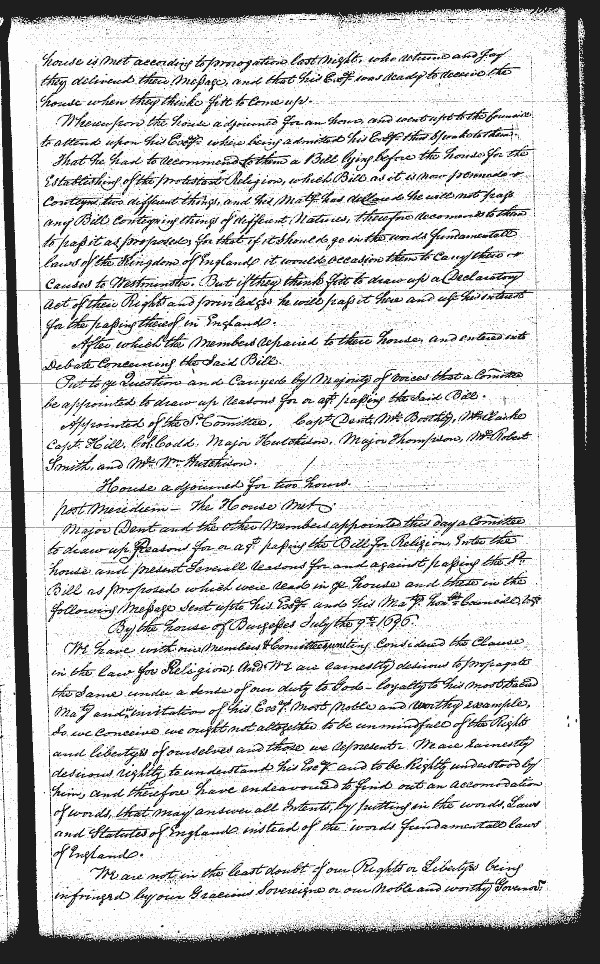 house is met according to prorogation last night, who return and say
they delivered their Message, and that his Excy. was ready to receive the
house when they think fitt to come up.
Whereupon the house adjourned for an hour, and went up to the Councill
to attend upon his Excy. where being admitted his Excy. thus Spoke to them.
That he had to recommend to them a Bill lying before the house for the
Establishing of the protestant Religion, which Bill as it is now penned
Conteyns two different things, and his Maty. has declared he will not pass
any Bill Conteyning things of different Natures, therefore recomends to them
to pass it as proposed; for that if it should go in the words fundamentall
laws of the Kingdom of England it would occasion them to carry their
Causes to Westminster. But if they think fitt to draw up a Declaratory
Act of their Rights and priviledges he will pass it here and use his interest
for the passing thereof in England.
After which the Members repaired to their house, and entered into
Debate Concerning the Said Bill.
Put to ye Question and Carryed by Majority of voices that a Comittee
be appointed to draw up reasons for or agt. passing the Said Bill.
Appointed of the Sd. Comittee, Capt. Dent, Mr. Boothby, Mr. Clarke
Capt. Hill, Coll Codd, Major Hutchison, Major Thompson, Mr. Robert
Smith, and Mr. Wm. Hutchison.
House adjourned for two hours.
post Meridiem — The House Met.
Major Dent and the other Members appointed this day a Comittee
to draw up Reasons for or agt. passing the Bill for Religion, Enter the
house and present Severall reasons for and against passing the Sd.
Bill as proposed which were read in ye house and these in the
following Message Sent up to his Excy. and his Maty. honble. Councill,
By the house of Burgesses July the 9th. 1696.
We have with our Members & Comittee Considered the Clause
in the law for Religion; And We are earnestly desirous to propagate
the Same under a sense of our duty to God — loyalty to his most Sacred
Maty. and invitation of his Excys. most Noble and worthy example,
So we conceive we ought not altogether to be unmindfull of the Rights
and libertyes of ourselves and those we represent. We are Earnestly
desirous rightly to understand his Excy. and to be Rightly understood by
him, and therefore have endeavoured to find out an accomodation
of words, that may answer all Intents, by putting in the words Laws
and Statutes of England instead of the words fundamentall laws
of England.
We are not in the least doubt of our Rights or Libertyes being
infringed by our Gracious Sovereigne or our Noble and worthy Govenor,